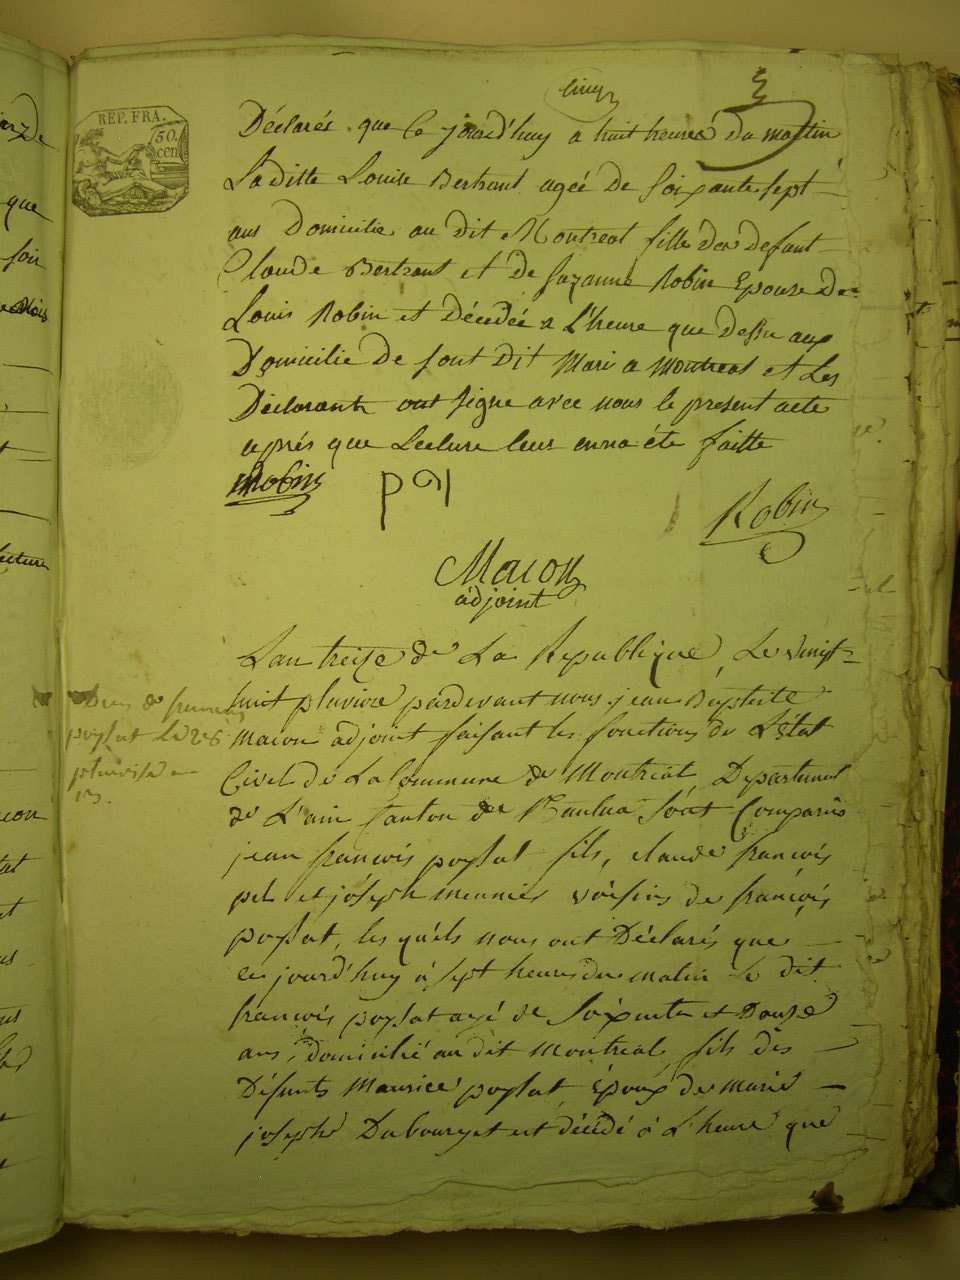 cinq
REP. FRA.
50.
cen
Déclarés que Ce jourd'huy a huit heures du mattin
Laditte Louise Bertrant agée De Soixante Sept
ans Domicilie au dit Montreal fille deu defunt
Claude Bertrant et de Suzanne Robin Epouse De
Louis Robin et Décédée a L'heure que dessu aux
Domicilie De sont Dit Mari a Montreal et Les
Déclarants ont Signe avec nous le present acte
après que Lecture leur enna été faitte
Robin
Robin
Macon
adjoint
Lan treize de La Republique, Le vingt
huit pluviose pardevant nous jean Baptiste
macon adjoint faisant les fonctions de L'état
Civil de La Commune de Montréal Departement
de L'ain Canton de Nantua Sont Comparus
jean francois poysat fils, claude francois
pel et joseph meunier voisins de francois
poysat, les quels nous ont Déclarés que
ce jourd'huy à sept heures du matin Le dit
francois poysat agé de Soixante et Douze
ans, domicilié au dit Montreal, fils des
Défunts Maurice poysat, Époux de marie
josephe Dubourget est décédé à L'heure que
poysat Le 28
pluviose
13.